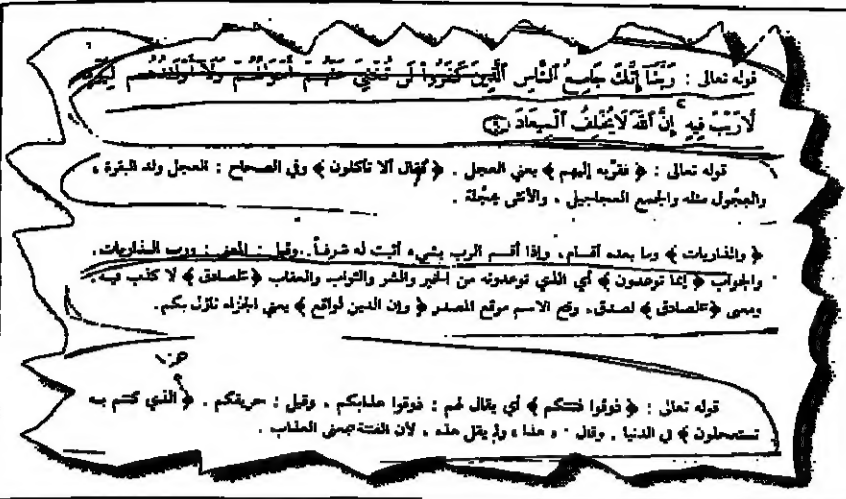 قوله تعالى : رَبَّنَا إِنَّكَ جَامِعُ النَّاسِ الَّذِينَ كَفَرُوا لَن تُغْنِيَ عَنْهُمْ أَمْوَالُهُمْ وَلَا أَوْلَادُهُم
لَا رَيْبَ فِيهِ إِنَّ اللَّهَ لَا يُخْلِفُ الْمِيعَادَ ٩
قوله تعالى : ﴿ فقرّبه إليهم ﴾ يعني العجل . ﴿ فقال ألا تأكلون ﴾ وفي الصحاح : العجل ولد البقرة ،
والعِجَّول مثله والجمع العجاجيل ، والأنثى عِجْلة .
﴿ والذاريات ﴾ وما بعده أقسام، وإذا أقسم الرب بشيء أثبت له شرفاً . وقيل : المعنى : ورب الذاريات.
والجواب ﴿ إنما توعدون ﴾ أي الذي توعدونه من الخير والشر والثواب والعقاب ﴿ لصادق ﴾ لا كذب فيه.
ومعنى ﴿ لصادق ﴾ لصدق، وقع الاسم موقع المصدر ﴿ وإن الدين لواقع ﴾ يعني الجزاء نازل بكم.
هذا
قوله تعالى : ﴿ ذوقوا فتنتكم ﴾ أي يقال لهم : ذوقوا عذابكم ، وقيل : حريقكم . ﴿ الذي كنتم به
تستعجلون ﴾ في الدنيا ، وقال « هذا » ولم يقل هذه ، لأن الفتنة بمعنى العذاب .